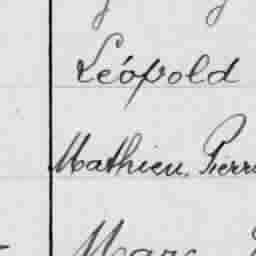 Léopold
Mathieu, Pierre
Marc